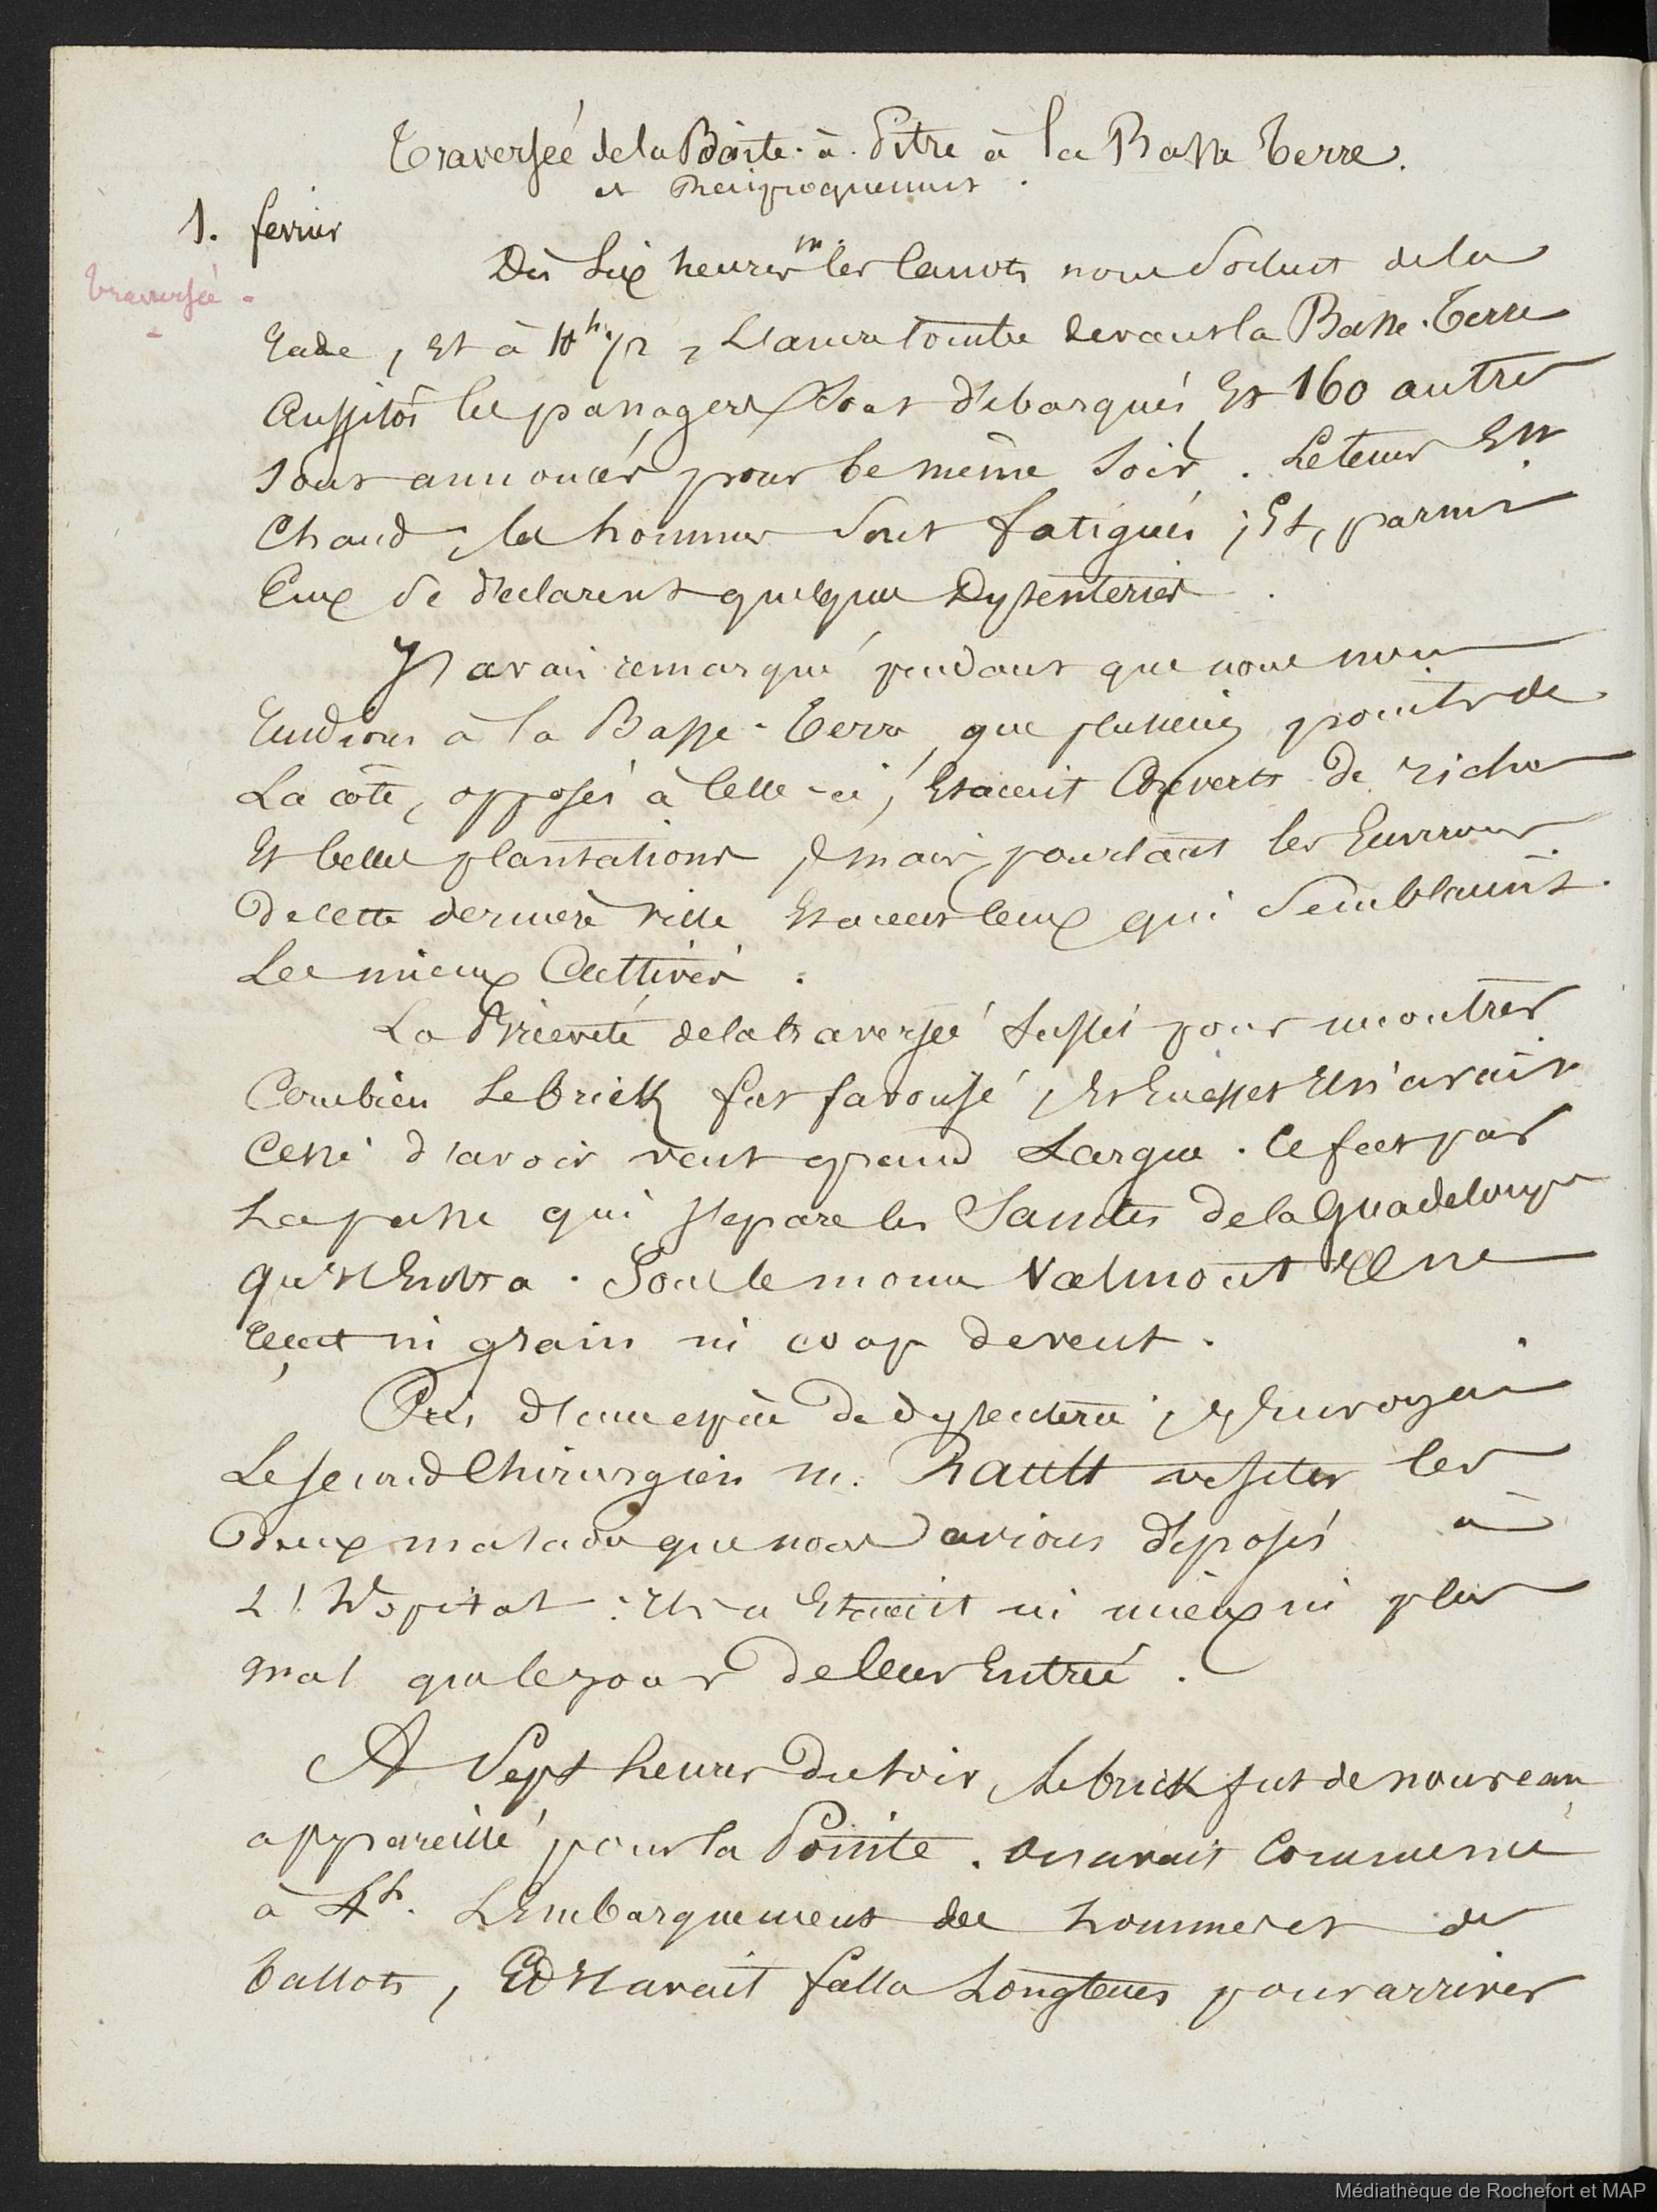 Traversée de la Pointe-à-Pitre à la Basse Terre.
et Réciproquement.
1. fevrier
Traversée -
Dès Six heures m. les Canots nous sortent de la
rade, Et à 10h 1/2, L'ancre tombe devant la Basse-Terre
Aussitôt les passagers sont débarqués, Et 160 autres
sont annoncés pour le même soir. Le tems Est
Chaud, les hommes sont fatigués ; Et, parmi
Eux se déclarent quelques Dysenteries.
J'avais remarqué pendant que nous nous
rendions à la Basse-Terre, que plusieurs points de
La côte, opposés à Celle-ci, Etaient Couverts de riches
Et belles plantations, mais pourtant les Environs
De Cette dernière ville Etaient Ceux qui Semblaient
Les mieux Cultivés.
La Brièveté de la traversée suffit pour montrer
Combien Le brick fut favorisé, Et En effet Il n'avait
Cessé d'avoir vent grand Largue. Ce fut par
La passe qui sépare les Saintes de la Guadeloupe
qu'il Entra. Sous le morne Valmont Il ne
reçut ni grain ni coup de vent.
Pris d'une espèce de dysenterie, j'Envoyai
Le second Chirurgien m. Rault visiter les
Deux malades que nous avions déposés à
L'Hopital : Ils n'Etaient ni mieux ni plus
mal que le jour de leur Entrée.
A Sept heures Du soir, Le brick fut de nouveau
appareillé pour la Pointe. On avait Commencé
à 4h. L'Embarquement des hommes et des
ballots, Et Il avait fallu Longtems pour arriver
Médiathèque de Rochefort et MAP